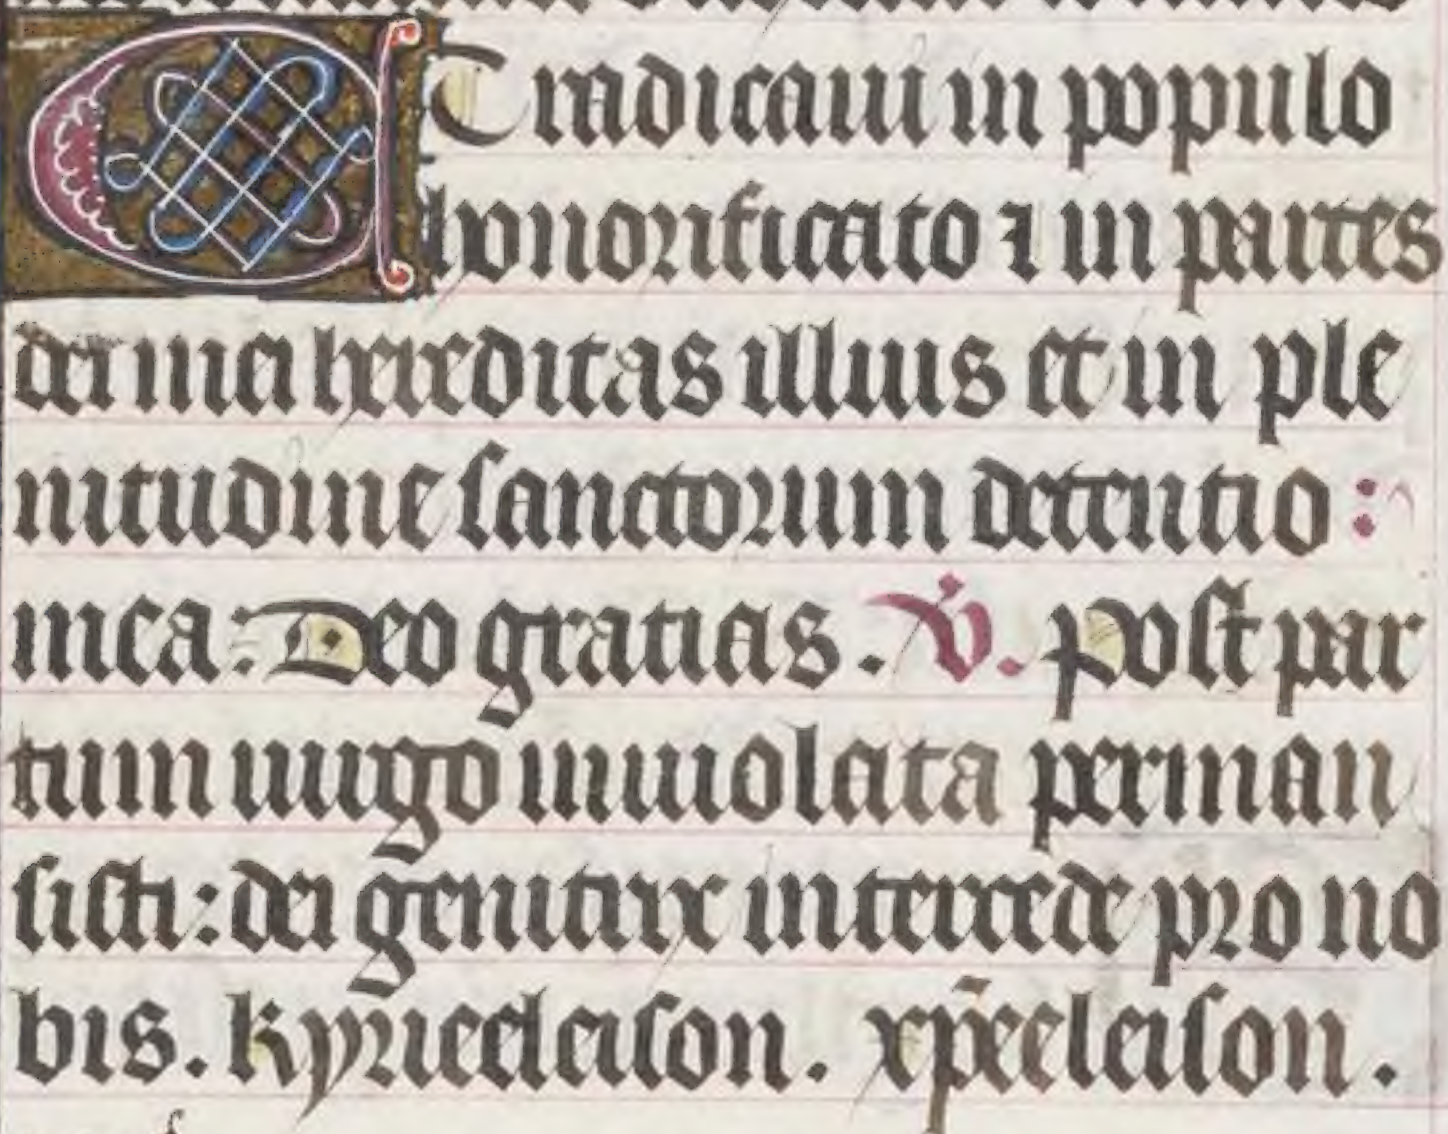 ET radicaui in populo
honorificato ⁊ in partes
dei mei hereditas illius et in ple
nitudine sanctorum detentio :
mea: Deo gratias. V̇. post par
tum uirgo inuiolata perman
sisti: dei genitrix intercede pro no
bis. kyrieeleison. xp̄eeleison.